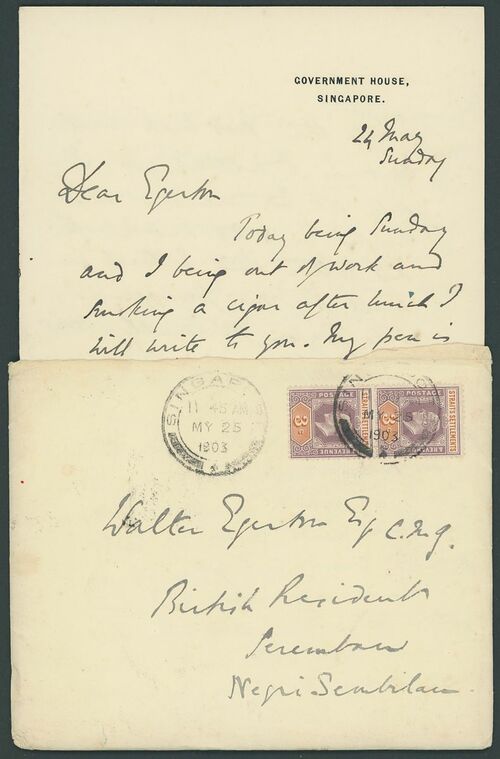 GOVERNMENT HOUSE,
SINGAPORE.
24 May
Sunday
Dear Egerton
Today being Sunday
and I being out of work and
smoking a cigar after lunch I
will write to you. My pen is
SINGAP
11 45 AM
MY 25
1903
POSTAGE
STRAITS SETTLEMENTS
3c
& REVENUE
POSTAGE
STRAITS SETTLEMENTS
3c
& REVENUE
MY 25
1903
Walter Egerton Esq C.M.G.
British Resident
Seremban
Negri Sembilan